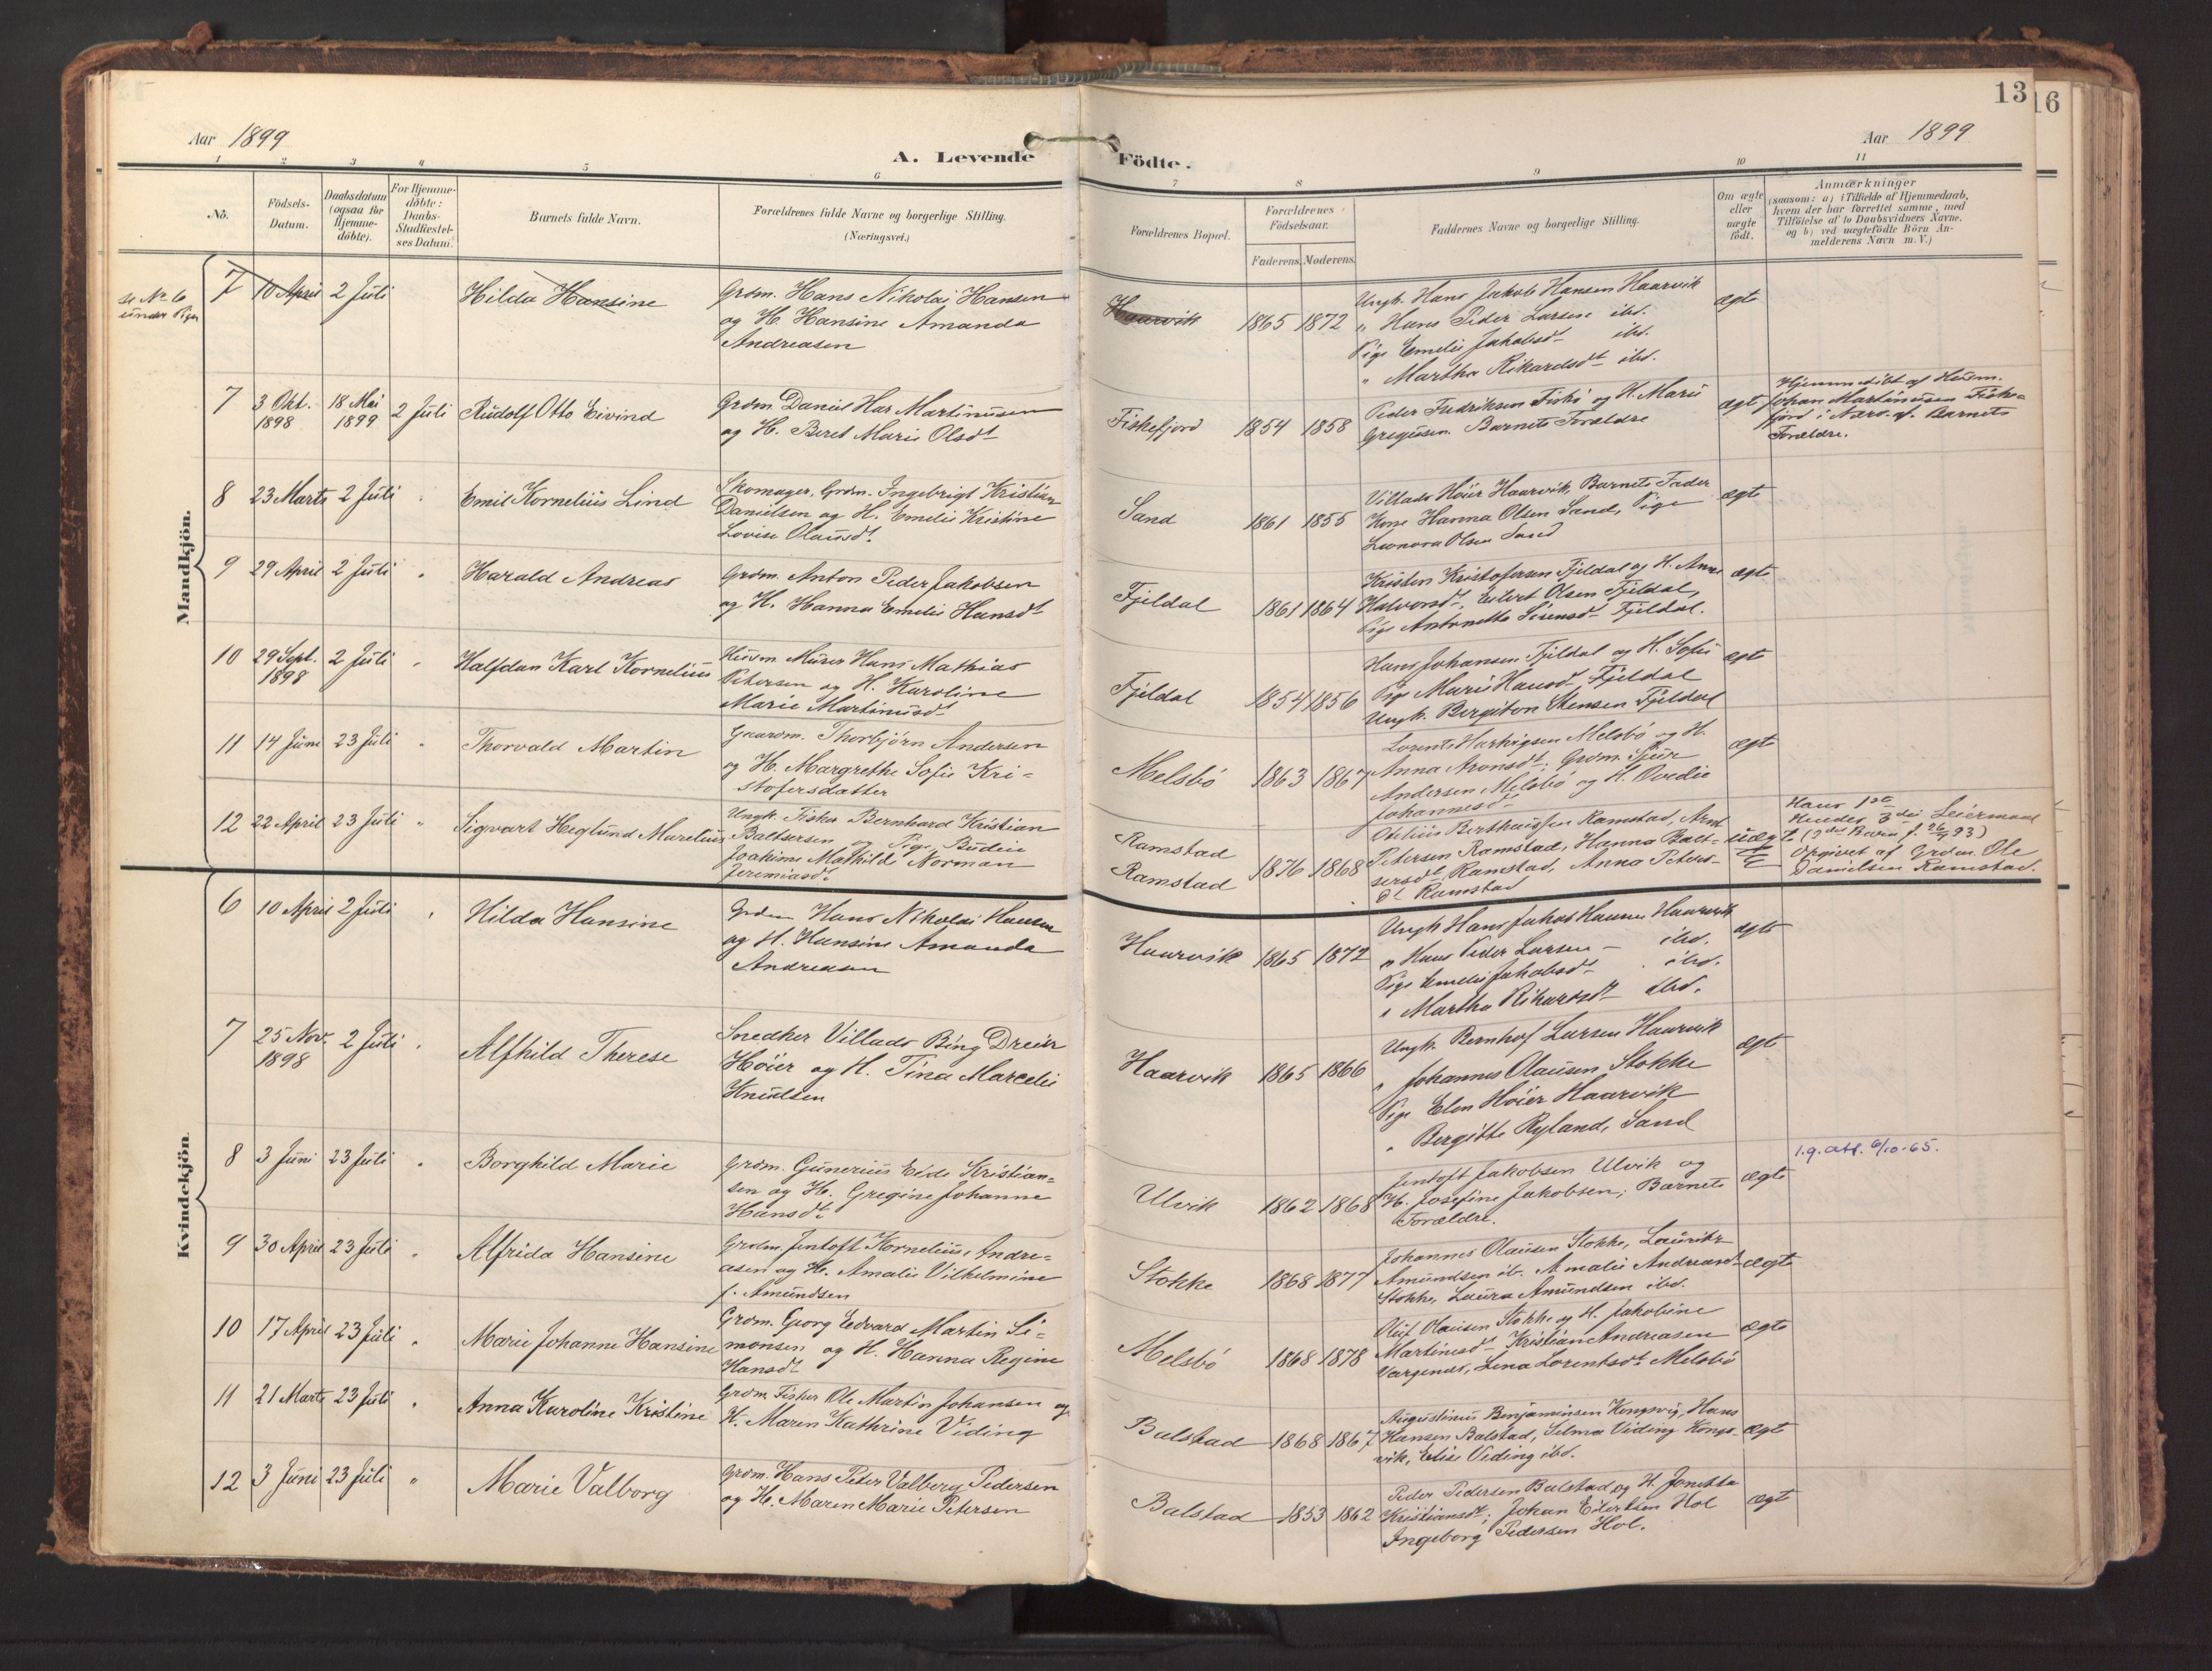 13
16
Aar 1899
A. Levende
Födte.
Aar 1899
1 2 3 4 5 6 7 8 9 10 11
No.
Födsels-
Datum.
Daabsdatum
(ogsaa for
Hjemme-
döbte).
For Hjemme-
döbte:
Daabs-
Stadfæstel-
ses Datum.
Barnets fulde Navn.
Forældrenes fulde Navne og borgerlige Stilling.
(Næringsvei.)
Forældrenes Bopæl.
Forældrenes
Födselsaar.
Faderens. Moderens.
Faddernes Navne og borgerlige Stilling.
Om ægte
eller
uægte
födt.
Anmærkninger
(saasom: a) i Tilfælde af Hjemmedaab,
hvem der har forrettet samme, med
Tilföielse af to Daabsvidners Navne.
og b) ved uægtefödte Börn An-
melderens Navn m. V.)
Mandkjön.
se No 6
under Piger
7 10 April 2 Juli Hilda Hansine
Grdm. Hans Nikolai Hansen
og H. Hansine Amanda
Andreasen
Haarvik 1865 1872
Ungk. Hans Jakob Hansen Haarvik
" Hans Peder Larsen ibd.
Pige Emelie Jakobsdt ibd.
" Martha Rikardsdt ibd.
ægte
7 3 Okt. 1898 18 Mai 1899 2 Juli Rudolf Otto Eivind
Grdm. Daniel Har Martinusen
og H. Beret Marie Olsdt
Fiskefjord 1854 1858
Peder Fredriksen Fiskö og H. Marie
Gregusen. Barnets Forældre
ægte
Hjemmedöbt af Husm.
Johan Martinusen Fiske-
fjord i Nærv. af Barnets
Forældre.
8 23 Marts 2 Juli " Emil Kornelius Lind
Skomager, Grdm. Ingebrigt Kristian
Danielsen og H. Emelie Kristine
Lovise Olausdt.
Sand 1861 1855
Villads Höier Haarvik, Barnets Fader
Kone Hanna Olsen Sand, Pige
Leonora Olsen Sand
ægte
9 29 April 2 Juli " Harald Andreas
Grdm. Anton Peder Jakobsen
og H. Hanna Emelie Hansdt
Fjeldal 1861 1864
Kristen Kristofersen Fjeldal og H. Anne
Halvorsdt, Eilert Olsen Fjeldal,
Pige Antonette Sörensdt Fjeldal.
ægte
10 29 Sept. 1898 2 Juli " Halfdan Karl Kornelius
Husm. Murer Hans Mathias
Petersen og H. Karoline
Marie Martinusdt
Fjeldal 1854 1856
Hans Johansen Fjeldal og H. Sofie
Pige Marie Hansdt Fjeldal
Ungk. Bergiton Stensen Fjeldal
ægte
11 14 Juni 23 Juli " Thorvald Martin
Gaardm. Thorbjörn Andersen
og H. Margrethe Sofie Kri-
stofersdatter
Melsbö 1863 1867
Lorents Hartvigsen Melsbö og H.
Anna Aronsdt; Grdm. Sjur
Andersen Melsbö og H. Ovedie
Johannesdt
ægte
12 22 April 23 Juli " Sigvart Heglund Marelius
Ungk. Fisker Bernhard Kristian
Baltsersen og Pige, Budeie
Joakime Mathild Norman
Jeremiasdt.
Ramstad
Ramstad 1876 1868
Otelius Berthaussen Ramstad, Arnt
Petersen Ramstad, Hanna Balt-
sersdt Ramstad, Anna Peters-
dt Ramstad
uægte
Hans 1ste
Hendes 3die Leiermaal
(2det Barn f. 26/7 93)
Opgivet af Grdm. Ole
Danielsen Ramstad.
Kvindekjön.
6 10 April 2 Juli " Hilda Hansine
Grdm Hans Nikolai Hansen
og H. Hansine Amanda
Andreasen
Haarvik 1865 1872
Ungk Hans Jakob Hansen Haarvik
" Hans Peder Larsen – ibd.
Pige Emelie Jakobsdt – ibd.
" Martha Rikardsdt ibd.
ægte
7 25 Nov. 1898 2 Juli " Alfhild Therese
Snedker Villads Bing Dreier
Höier og H. Tina Marcelie
Knudsen
Haarvik 1865 1866
Ungk. Bernhof Larsen Haarvik
" Johannes Olausen Stokke
Pige Elen Höier Haarvik
" Bergitte Ryland, Sand
ægte
8 3 Juni 23 Juli " Borghild Marie
Grdm. Gunerius Eide Kristian-
sen og H. Gregine Johanne
Hansdt.
Ulvik 1862 1868
Jentoft Jakobsen Ulvik og
H. Josefine Jakobsen; Barnets
Forældre.
ægte
1.g. att. 6/10-65.
9 30 April 23 Juli " Alfrida Hansine
Grdm. Jentoft Kornelius Andre-
asen og H. Amalie Vilhelmine
f. Amundsen
Stokke 1868 1877
Johannes Olausen Stokke, Lauritz
Amundsen ib. Amalie Andreasdt
Stokke, Laura Amundsen ibd.
ægte
10 17 April 23 Juli " Marie Johanne Hansine
Grdm. Georg Edvard Martin Si-
monsen og H. Hanna Regine
Hansdt
Melsbö 1868 1878
Oluf Olausen Stokke og H. Jakobine
Martinesdt Kristian Andreasen
Vargenes, Lina Lorentsdt Melsbö
ægte
11 21 Marts 23 Juli " Anna Karoline Kristine
Grdm. Fisker Ole Martin Johansen og
H. Maren Kathrine Viding
Balstad 1868 1867
Augustinus Benjaminsen Kongsvig, Hans
Hansen Balstad, Selma Viding Kongs-
vik, Elise Viding ibd.
ægte
12 3 Juni 23 Juli " Marie Valborg
Grdm. Hans Peter Valberg Pedersen
og H. Maren Marie Petersen
Balstad 1853 1862
Peder Pedersen Balstad og H. Jonetta
Kristiansdt; Johan Eilertsen Hol
Ingeborg Pedersen Hol.
ægte